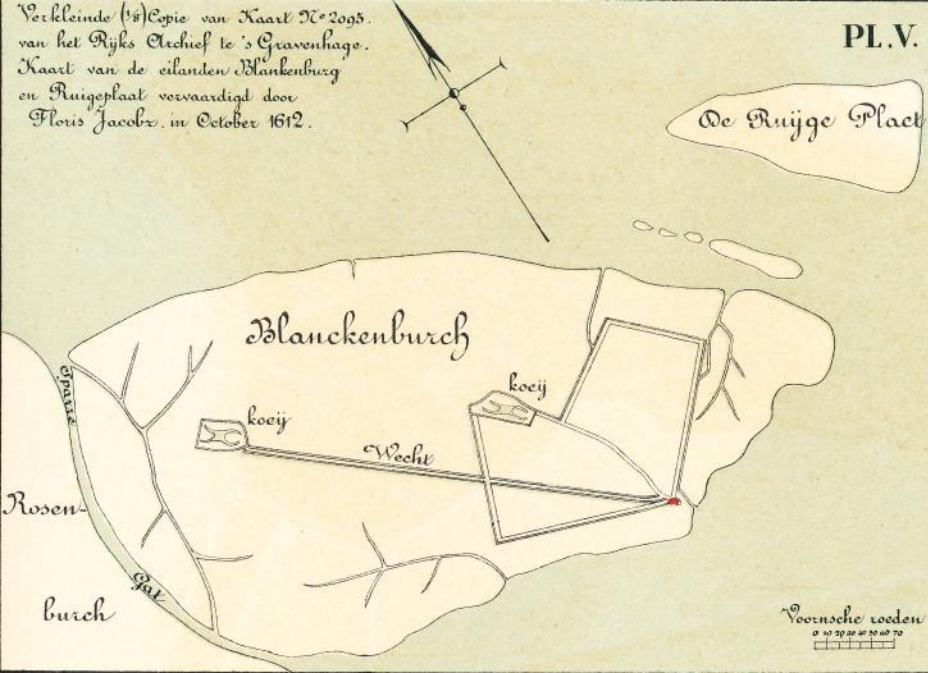 Verkleinde (⅛) Copie van Kaart Nº 2095.
van het Rijks Archief te 's Gravenhage.
Kaart van de eilanden Blankenburg
en Ruigeplaat vervaardigd door
Floris Jacobz. in October 1612.
PL.V.
De Ruijge Plaet
Blanckenburch
koeij
koeij
Wecht
Sparre
Gat
Rosen-
burch
Voornsche roeden
0 10 20 30 40 50 60 70